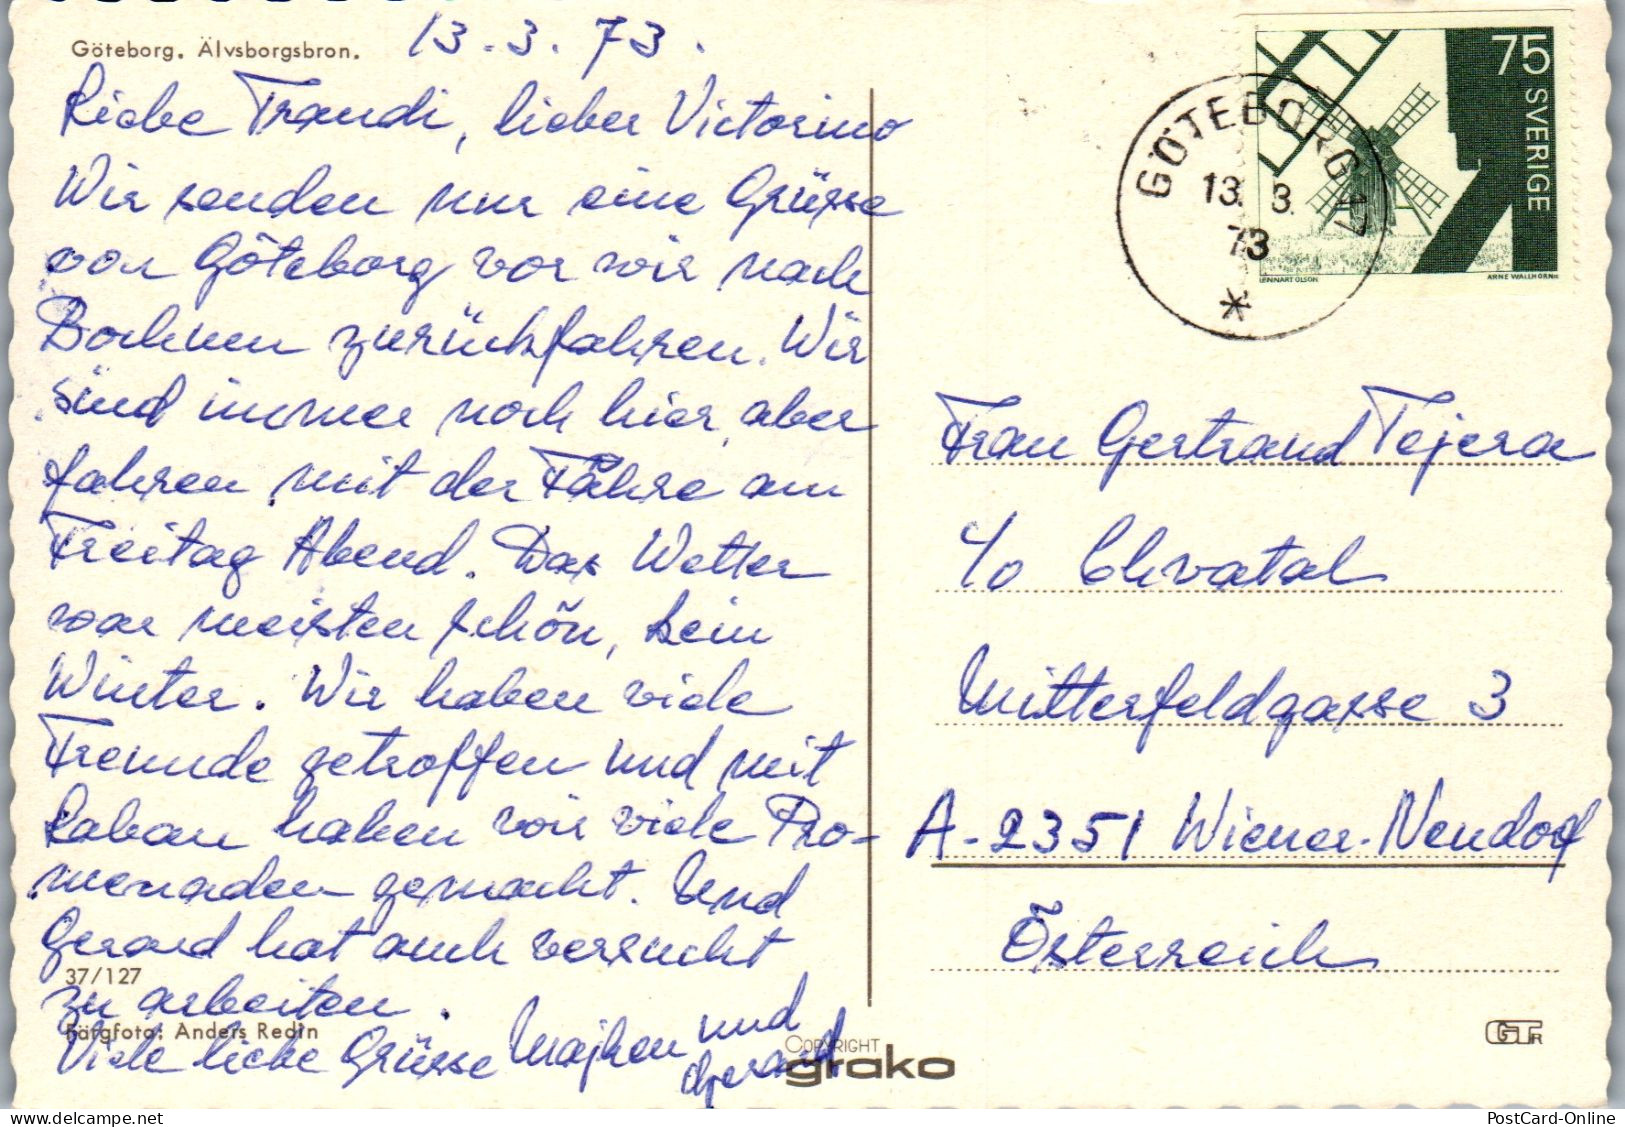 Göteborg. Älvsborgsbron.
13.3.73.
Liebe Traudi, lieber Victorino
Wir senden nur eine Grüsse
von Göteborg vor wir nach
Bochum zurückfahren. Wir
sind immer noch hier, aber
fahren mit der Fähre am
Freitag Abend. Das Wetter
war meisten schön, kein
Winter. Wir haben viele
Freunde getroffen und mit
haben wir viele Pro-
menaden gemacht. Und
Gerard hat auch versucht
37/127
zu arbeiten.
Färgfoto: Anders Redin
Viele liebe Grüsse Majken und
Gerard
COPYRIGHT
grako
75
SVERIGE
LENNART OLSON
ARNE WALLHORN
GÖTEBORG 17
13. 3.
73
Frau Gertraud Tejera
c/o Chvatal
Mitterfeldgasse 3
A-2351 Wiener-Neudorf
Österreich
PostCard-Online